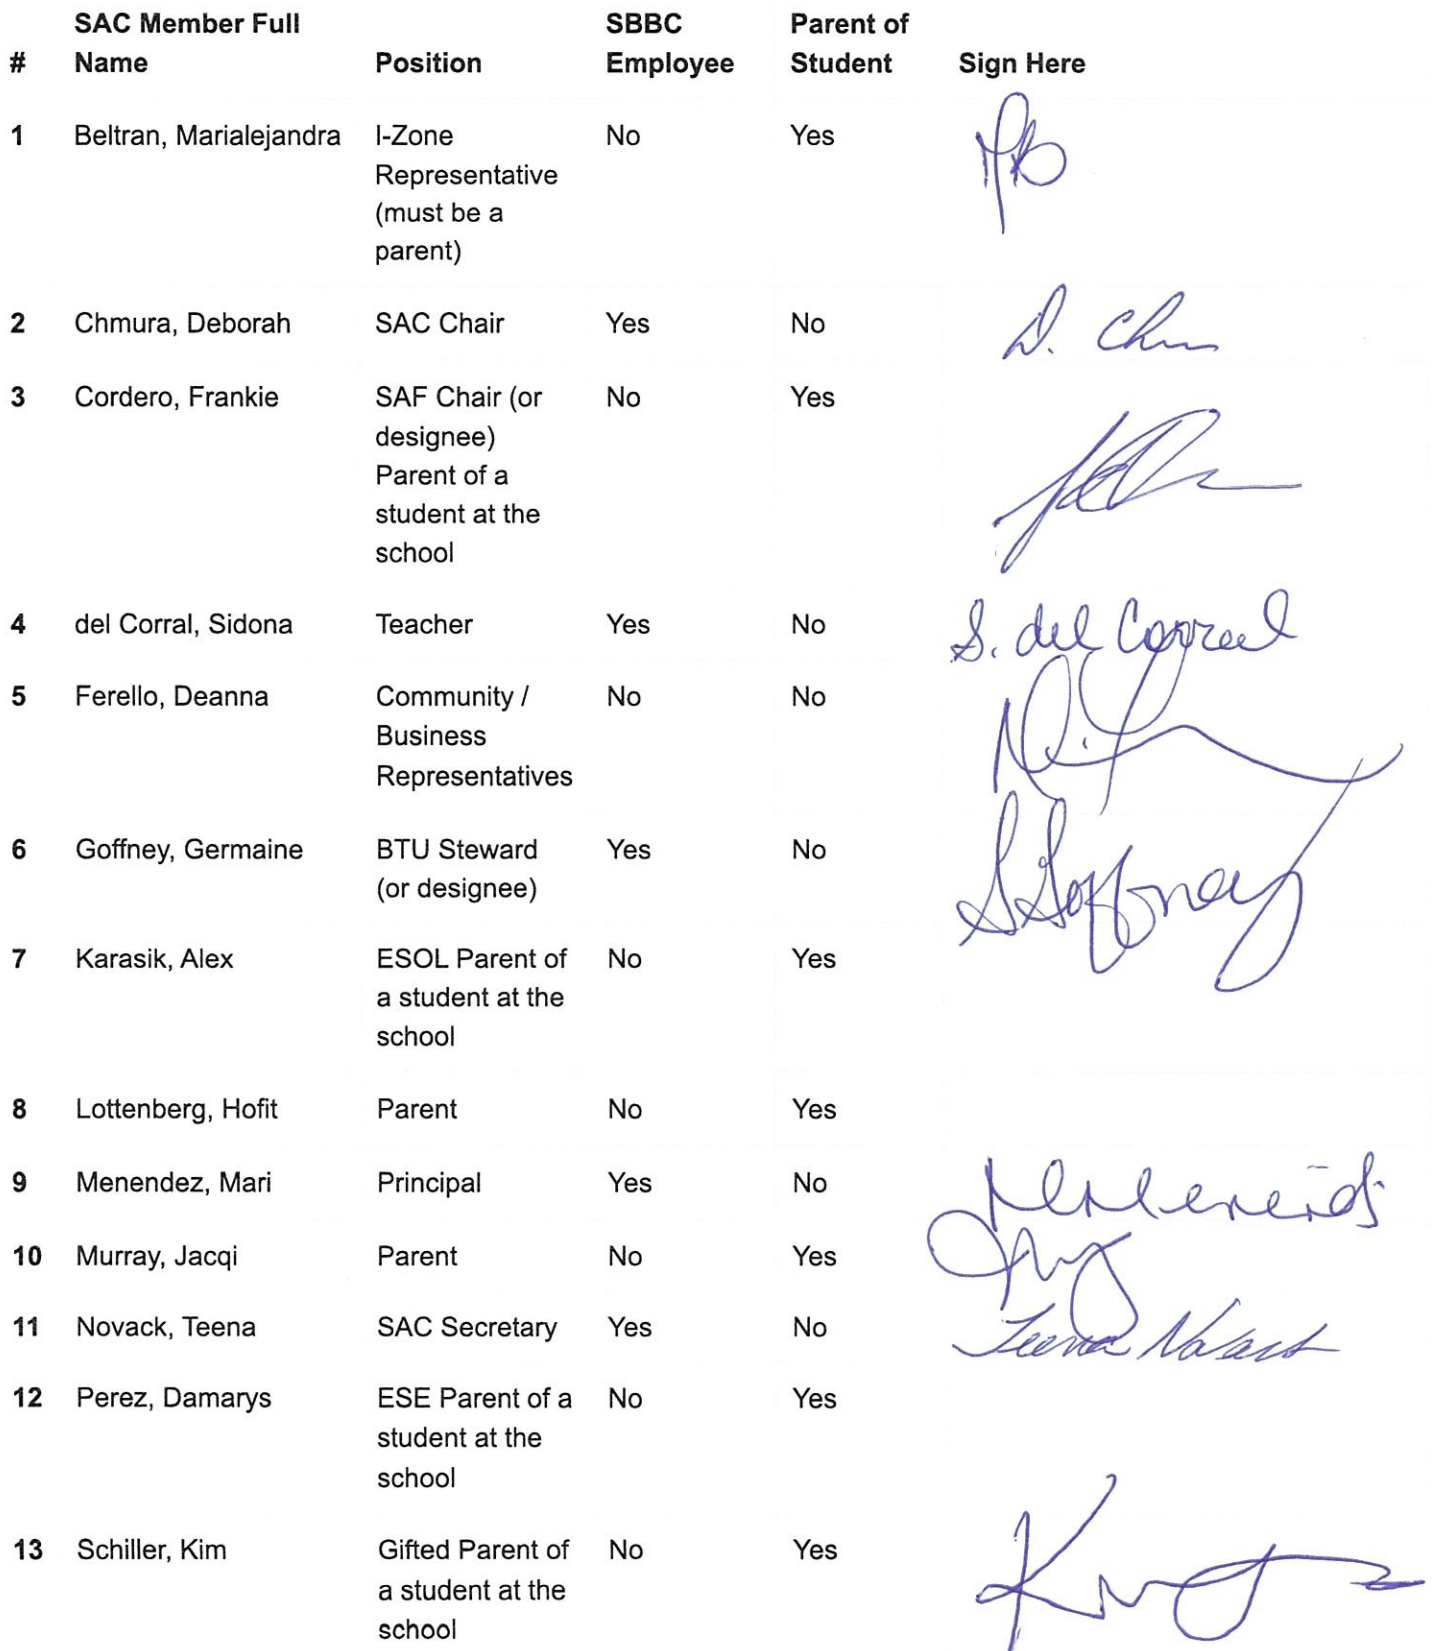 SAC Member Full SBBC Parent of
# Name Position Employee Student Sign Here
1 Beltran, Marialejandra I-Zone No Yes
Representative
(must be a
parent)
2 Chmura, Deborah SAC Chair Yes No D. Chm
3 Cordero, Frankie SAF Chair (or No Yes
designee)
Parent of a
student at the
school
4 del Corral, Sidona Teacher Yes No S. del Corral
5 Ferello, Deanna Community / No No
Business
Representatives
6 Goffney, Germaine BTU Steward Yes No G Goffney
(or designee)
7 Karasik, Alex ESOL Parent of No Yes
a student at the
school
8 Lottenberg, Hofit Parent No Yes
9 Menendez, Mari Principal Yes No
10 Murray, Jacqi Parent No Yes
11 Novack, Teena SAC Secretary Yes No Teena Novack
12 Perez, Damarys ESE Parent of a No Yes
student at the
school
13 Schiller, Kim Gifted Parent of No Yes
a student at the
school